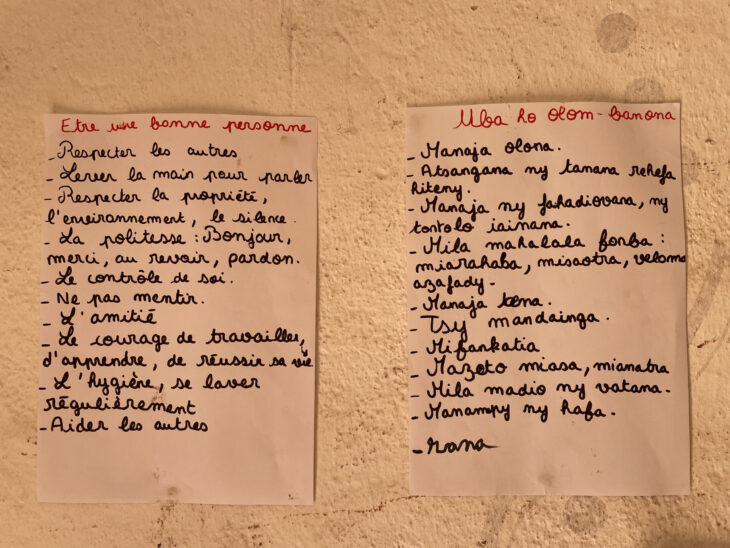 Etre une bonne personne
- Respecter les autres
- Lever la main pour parler
- Respecter la propriété,
l'environnement, le silence.
- La politesse : Bonjour,
merci, au revoir, pardon.
- Le contrôle de soi.
- Ne pas mentir.
- L'amitié
- Le courage de travailler,
d'apprendre, de réussir sa vie
- L'hygiène, se laver
régulièrement
- Aider les autres
Mba ho olom-banona
- Manaja olona.
- Atsangana ny tanana rehefa
hiteny.
- Manaja ny fahadiovana, ny
tontolo iainana.
- Mila mahalala fomba :
miarahaba, misaotra, veloma
azafady -
- Manaja tena.
- Tsy mandainga.
- Mifankatia
- Mazoto miasa, mianatra
- Mila madio ny vatana.
- Manampy ny hafa.